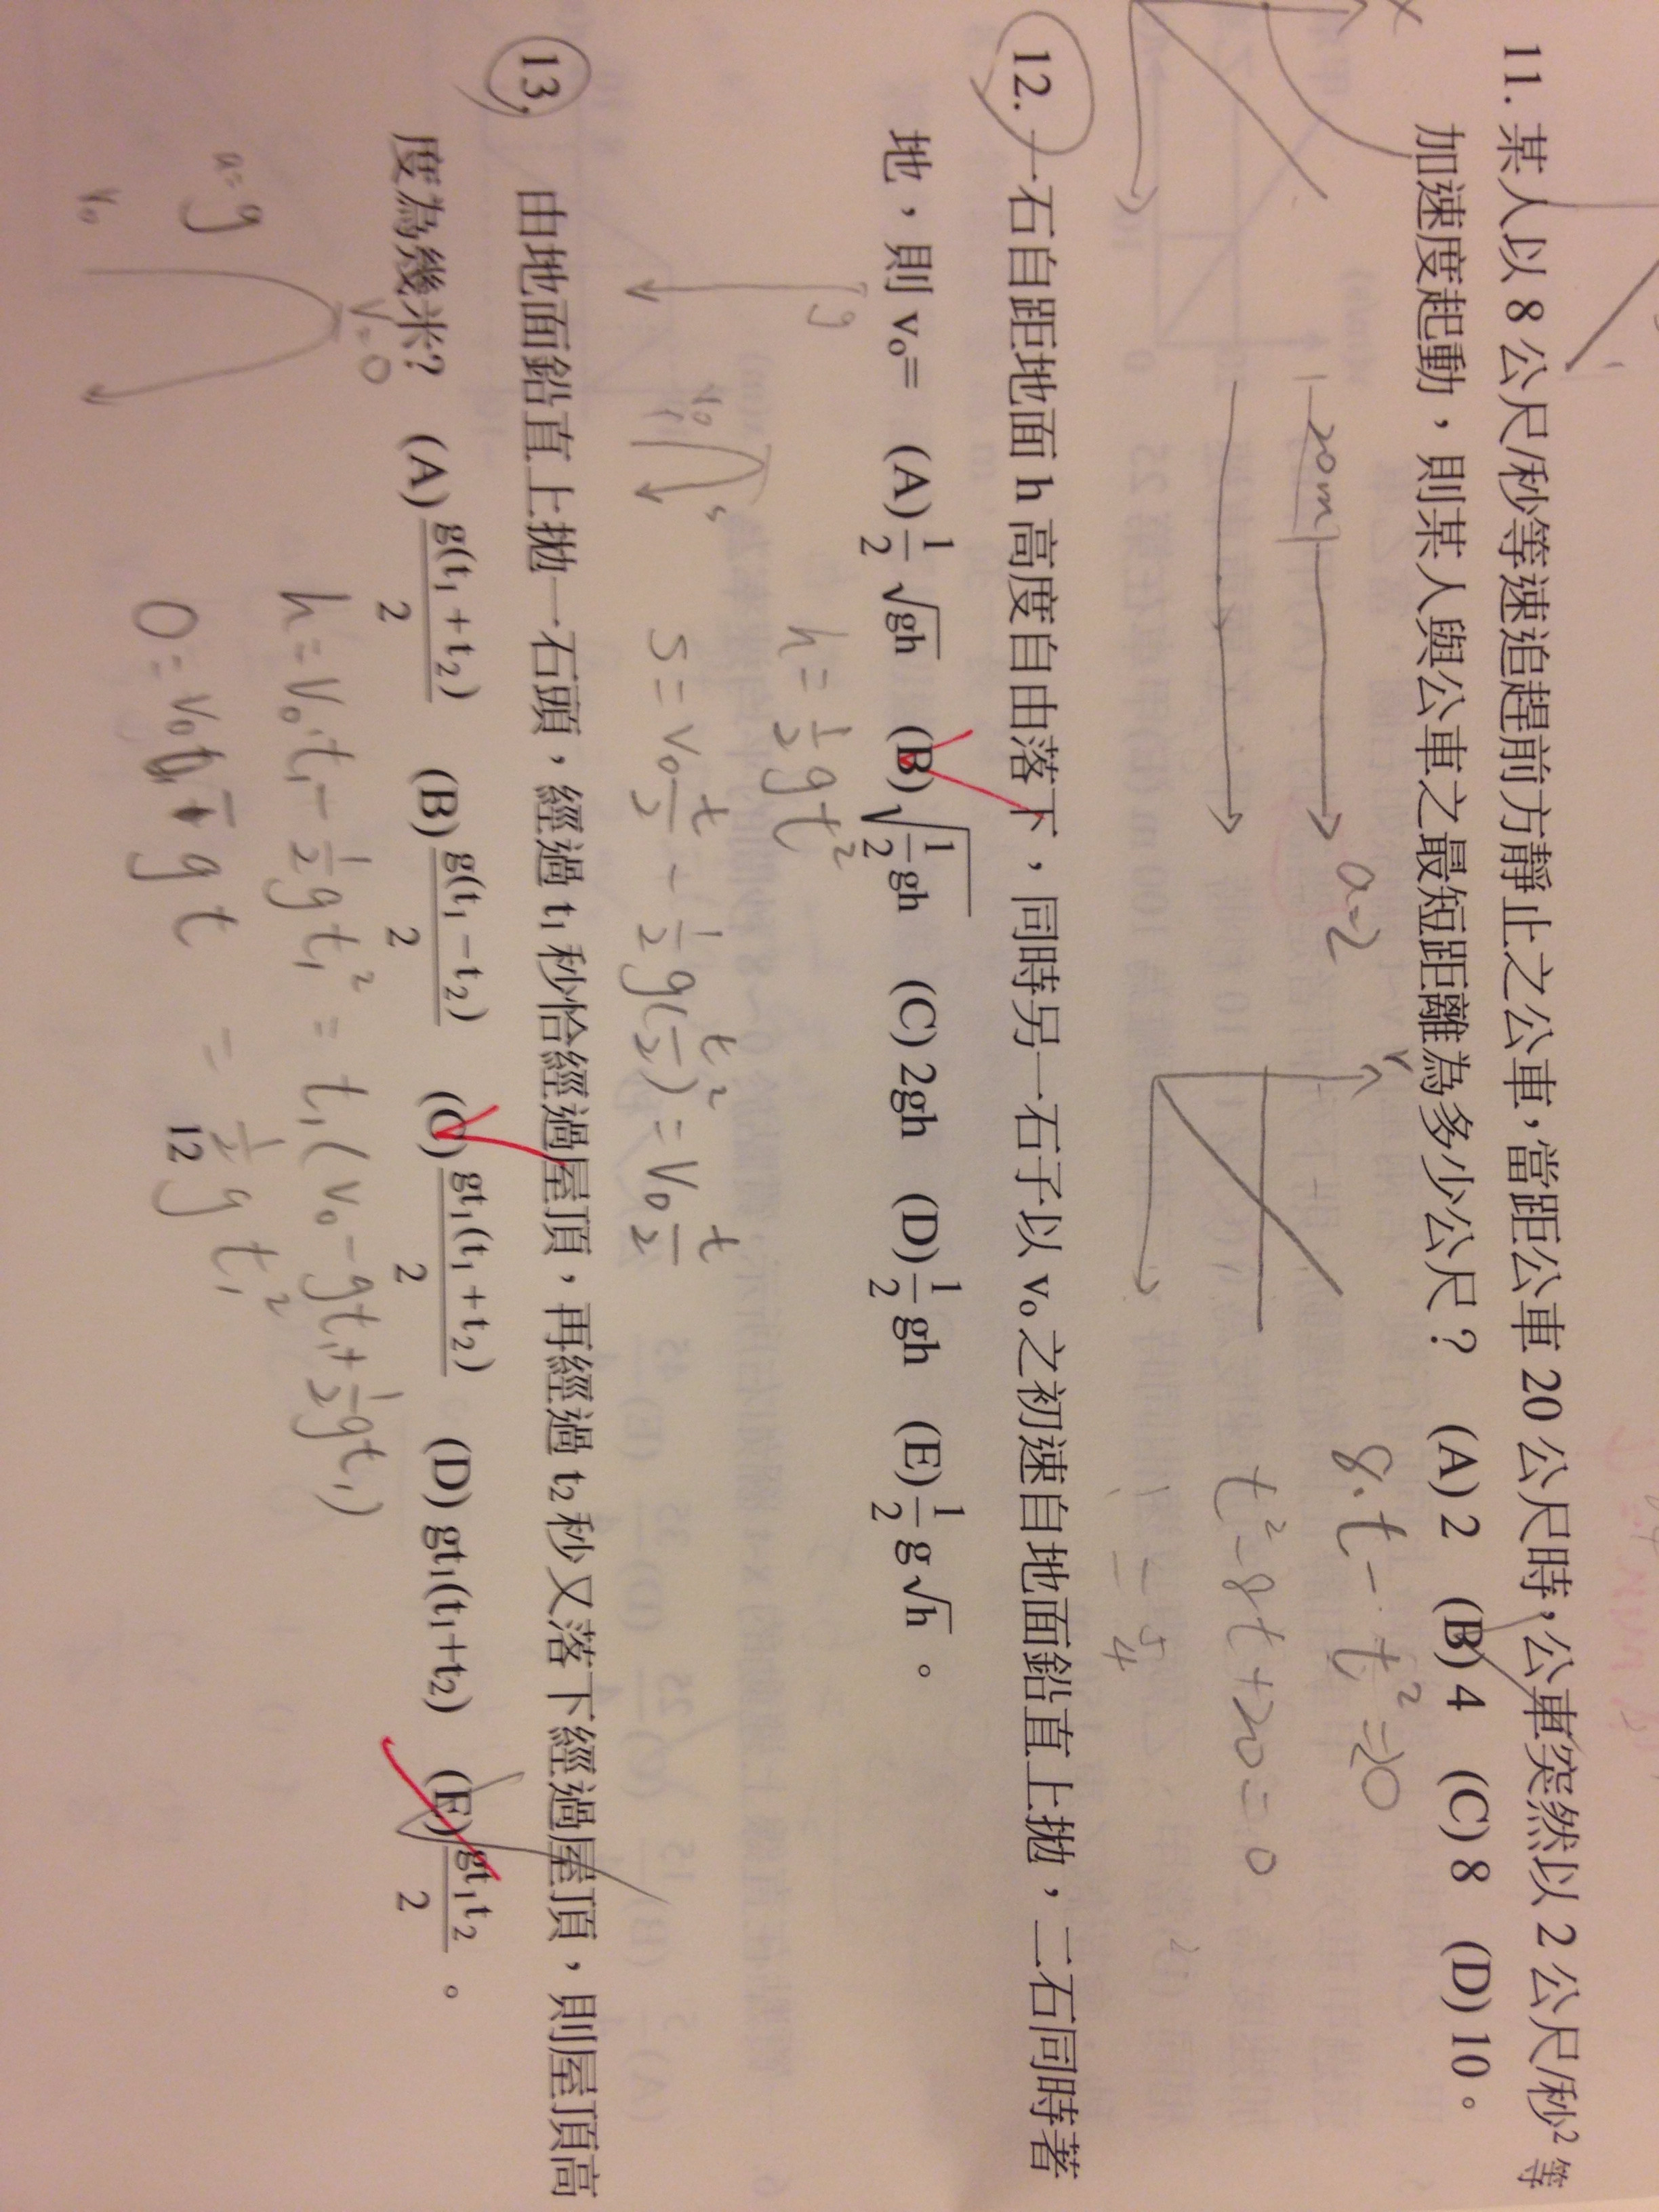 11. 某人以 8 公尺/秒等速追趕前方靜止之公車,當距公車 20 公尺時,公車突然以 2 公尺/秒² 等
加速度起動,則某人與公車之最短距離為多少公尺? (A) 2 (B) 4 (C) 8 (D) 10。
20m
a=2
v
8·t - t² = 20
t² - 8t + 20 = 0
12. 一石自距地面 h 高度自由落下,同時另一石子以 v₀ 之初速自地面鉛直上拋,二石同時著
地,則 v₀= (A) 1/2 √gh (B) √(1/2 gh) (C) 2gh (D) 1/2 gh (E) 1/2 g√h 。
g
h = 1/2 gt²
v₀
S = v₀ t/2 - 1/2 g(t/2)² = v₀ t/2
13. 由地面鉛直上拋一石頭,經過 t₁ 秒恰經過屋頂,再經過 t₂ 秒又落下經過屋頂,則屋頂高
度為幾米? (A) g(t₁+t₂)/2 (B) g(t₁-t₂)/2 (C) gt₁(t₁+t₂)/2 (D) gt₁(t₁+t₂) (E) gt₁t₂/2 。
v=0
a=g
v₀
h = v₀·t₁ - 1/2 gt₁² = t₁(v₀ - gt₁ + 1/2 gt₁)
= 1/2 g t₁²
12